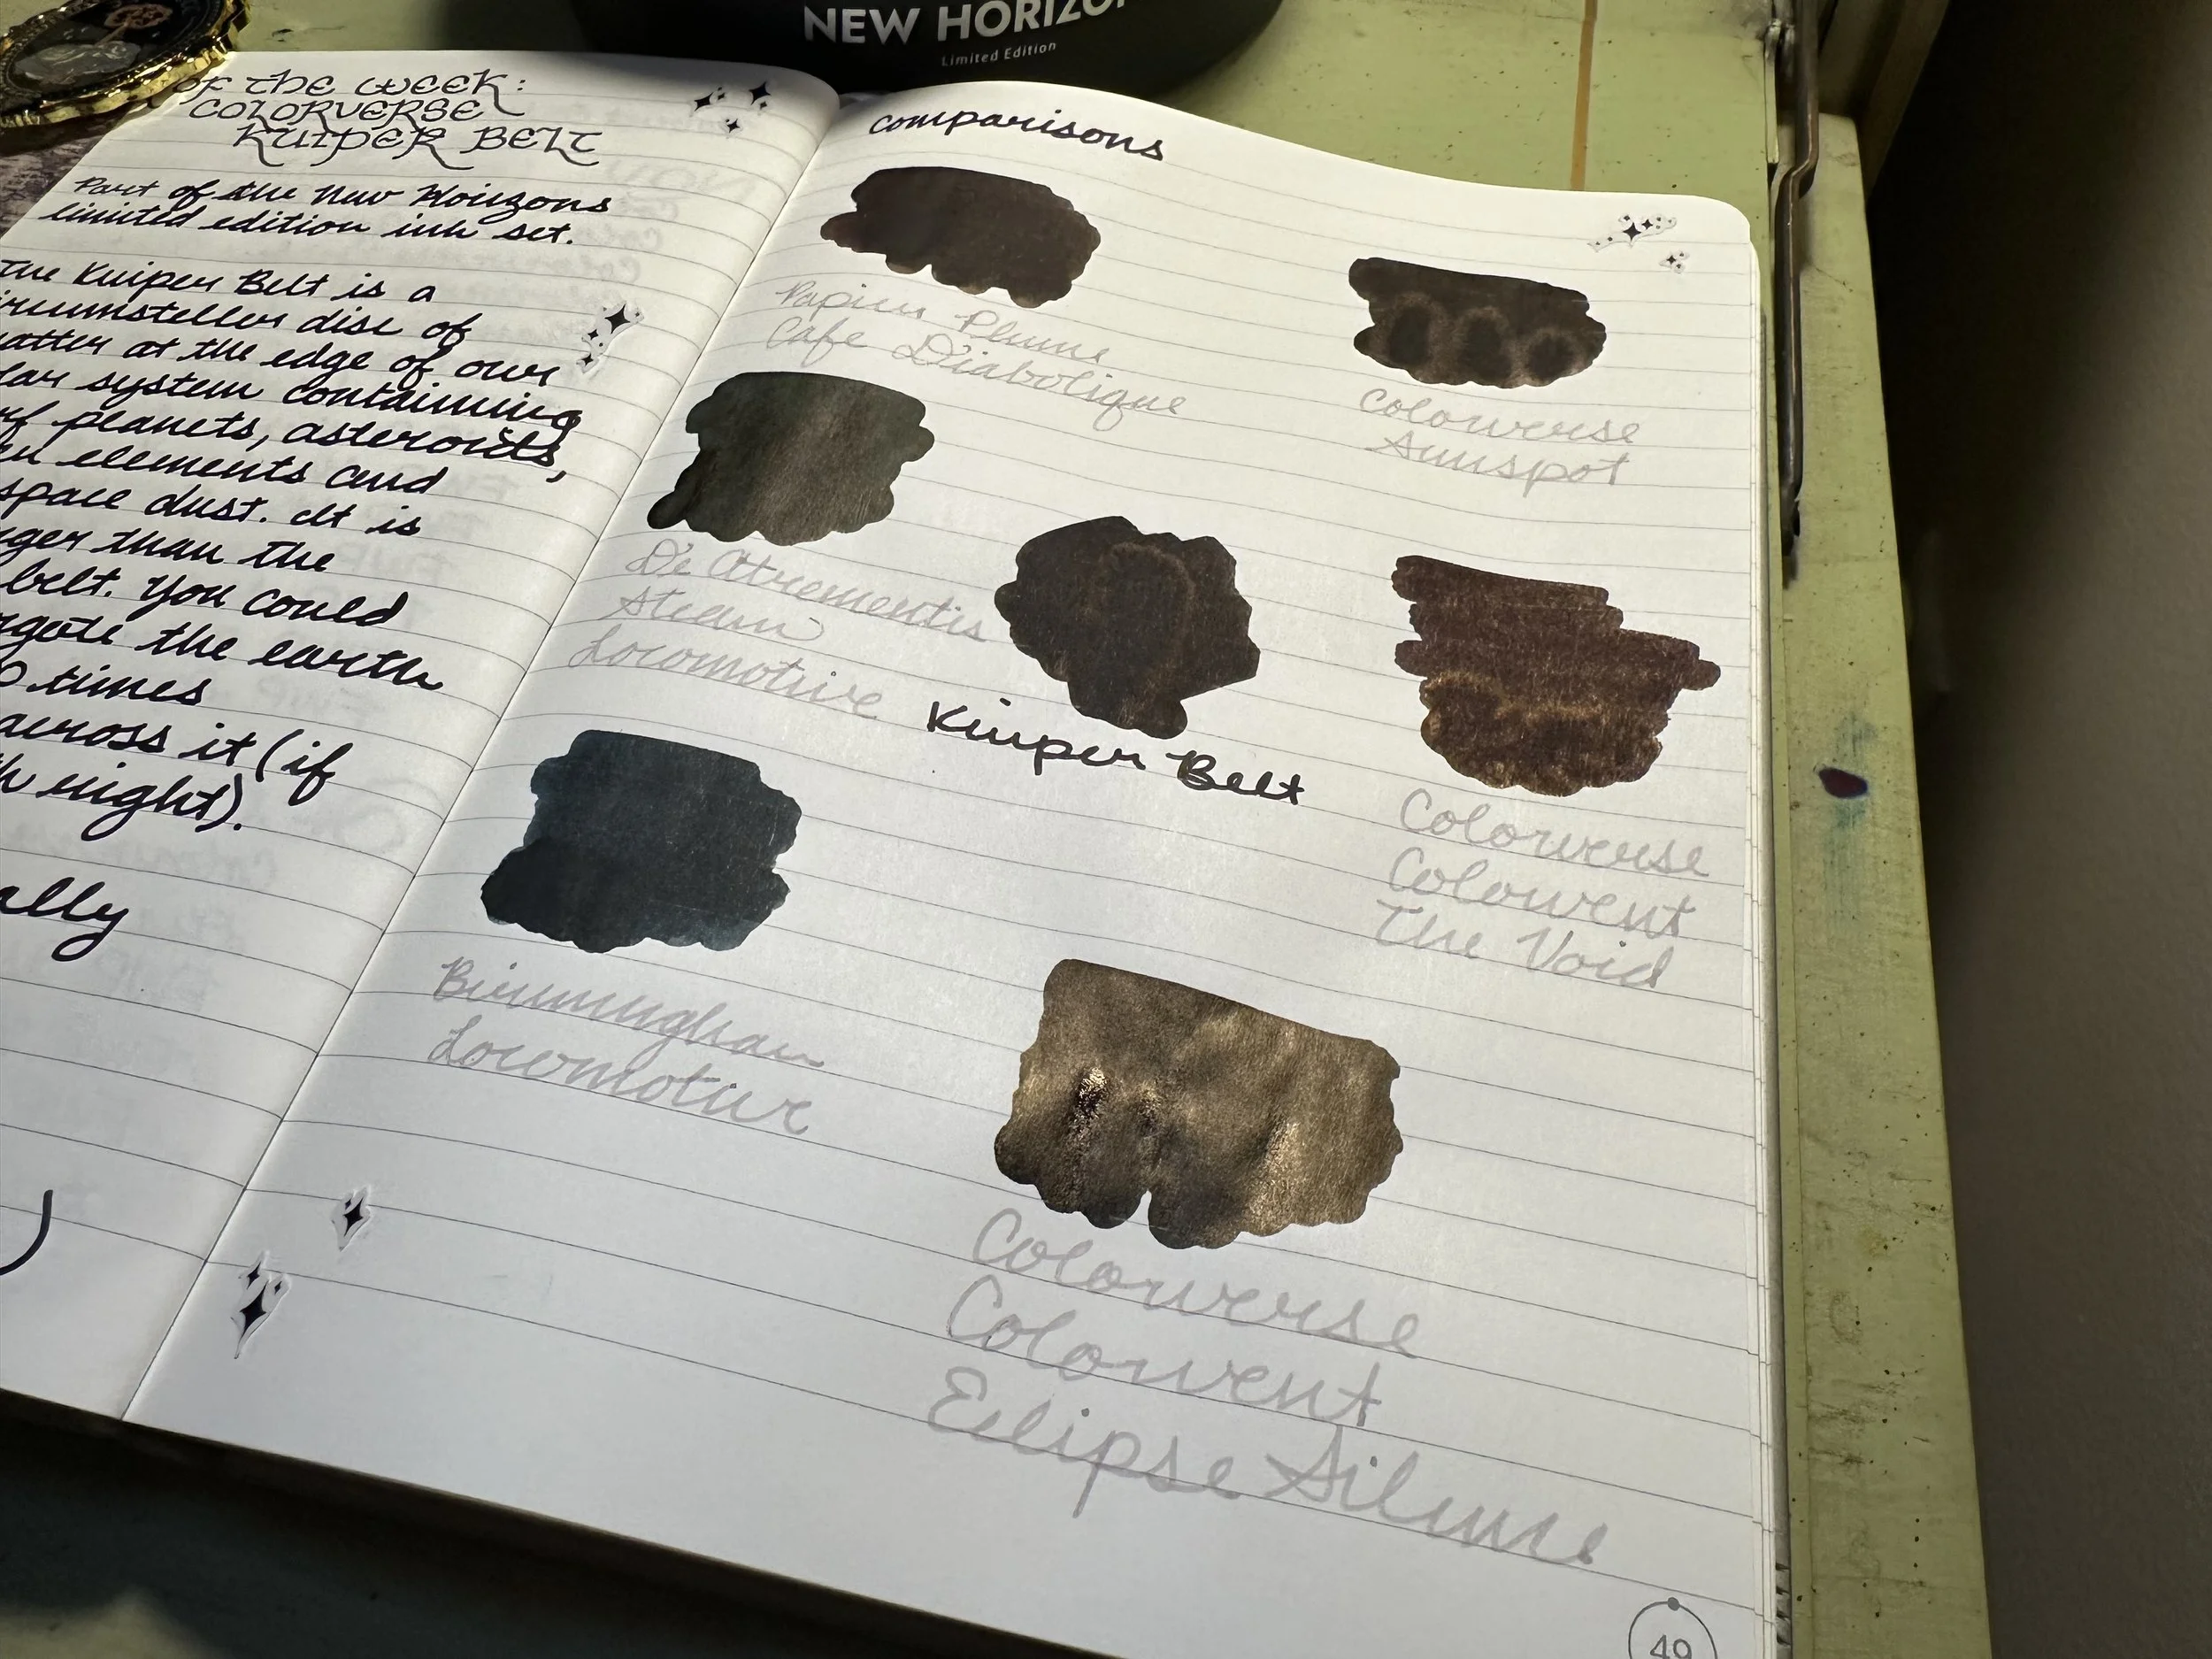 NEW HORIZO
Limited Edition
OF THE WEEK:
COLORVERSE
KUIPER BELT
Part of the New Horizons
limited edition ink set.
The Kuiper Belt is a
ircumstellar disc of
atter at the edge of our
lar system containing
rf planets, asteroids,
en elements and
space dust. It is
ger than the
belt. You could
the earth
0 times
across it (if
night).
ally
comparisons
Papier Plume
Cafe Diabolique
Colorverse
Sunspot
De Atrementis
Steam
Locomotive
Kuiper Belt
Colorverse
Colorvent
The Void
Birmingham
Locomotive
Colorverse
Colorvent
Eclipse Silence
49